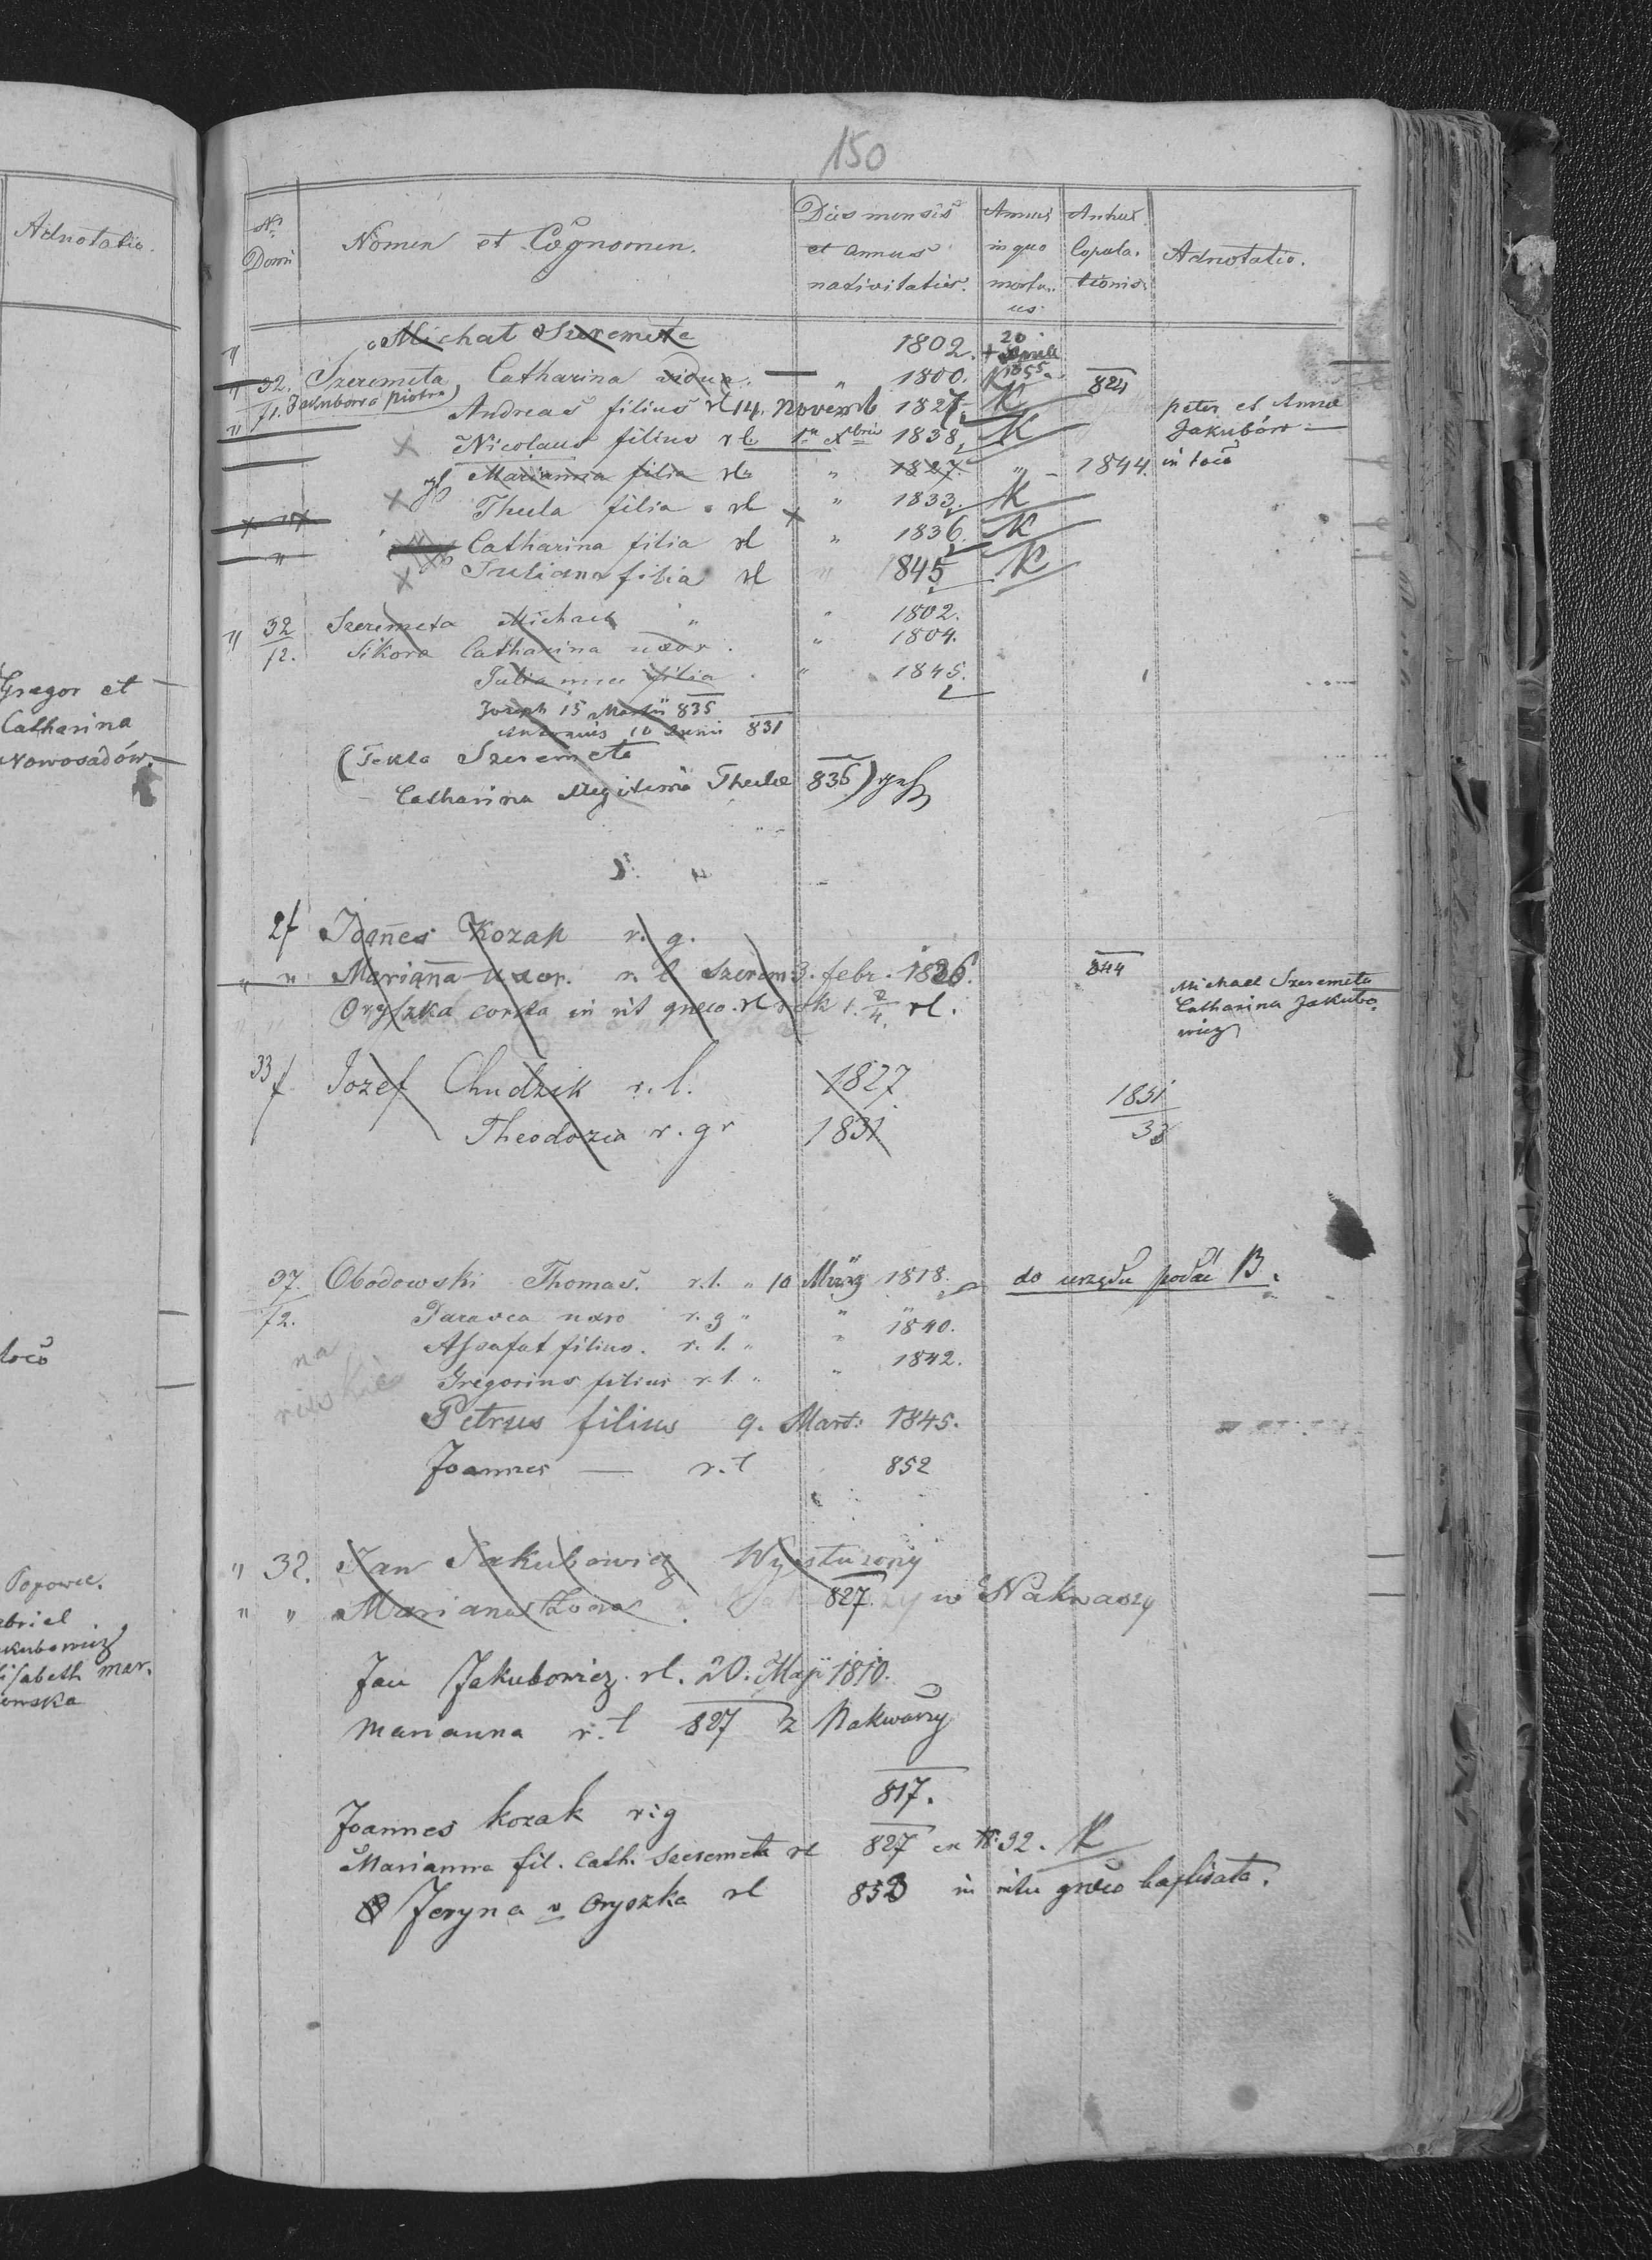 Adnotatio.
Gregor et
Catharina
Nowosadów.
loco
Popowce.
150
No Domi
Nomen et Cognomen.
Dies mensis et annus nativitatis.
Annus in quo mortuus
Annus Copulationis
Adnotatio.
" Michał Szeremeta 1802. + 20 Aprill 1855
" 32. Szeremeta, Catharina vidua. " 1800. K 824
/1. Jakubowa Piotra
" Andreas filius rl 14. Novemb 1827. K peter et Anna
Nicolaus filius rl. 1a Xbris 1838. K Jakubów
Marianna filia rl. " 1827. " 1844. in loco
Thecla filia rl " 1833. K
Catharina filia rl " 1836. K
" Juliana filia rl " 1845 K
" 32 Szeremeta Michael " " 1802.
/2. Sikora Catharina uxor. " 1804.
Julianna filia " 1845.
Joseph 15 Martii 835
Antonius 10 Junii 831
(Tekla Szeremeta
Catharina illegitima Theclae 836)
2f Joañes Kozak r. g.
" " Mariañna uxor. r. l Szerem 3. febr. 1826. 844 Michael Szeremeta
Catharina Jakubowicz
Oryszka corka in rit greco. rl rok 1. 2/4. rl.
33 f Jozef Chudzik r. l. 1827
1851
33
Theodozia r. gr 1831
37 Obodowski Thomas. r. l. " 10 März 1818. do urzędu podać B.
/2. Parasca uxro r. g " " "
Assafat filius. r. l. " " 1840.
Gregorius filius r. l. " " 1842.
na
Petrus filius 9. Mart: 1845.
Joannes — r. l 852
" 32. Jan Jakubowicz Wysłużony
" " Marianna Żona 827. w Nakwaszy
Jan Jakubowicz. rl. 20. Maji 1810.
Marianna r. l 827 z Nakwaszy
Joannes Kozak r: g 817.
Marianna fil. Cath. Szeremeta rl 827 ex N: 32. K
Jeryna v Oryszka rl 853 in ritu greco baptisata.